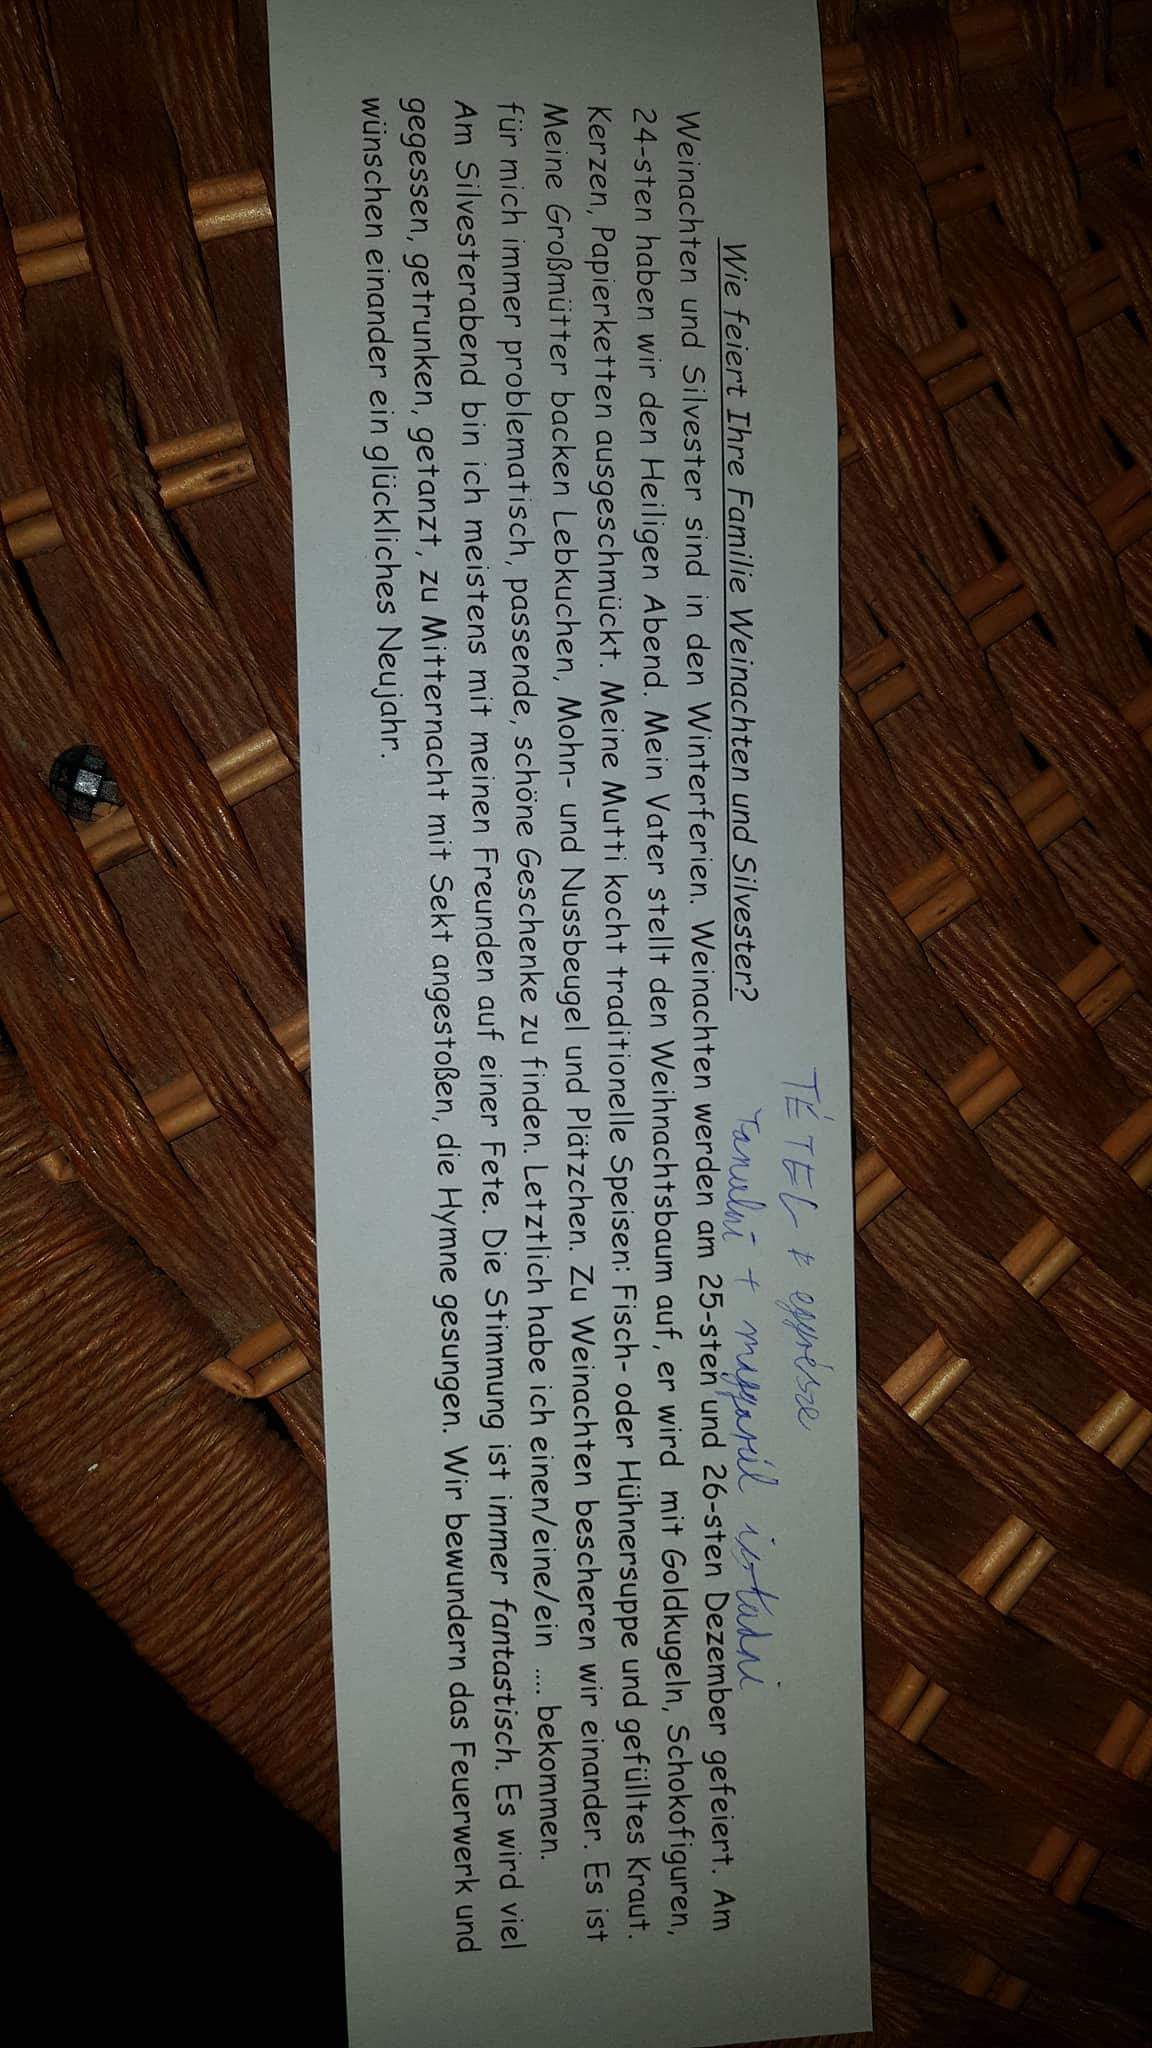 TÉTEL * egyrésze
Tanulni + magyarúl is tudni
Wie feiert Ihre Familie Weinachten und Silvester?
Weinachten und Silvester sind in den Winterferien. Weinachten werden am 25-sten und 26-sten Dezember gefeiert. Am
24-sten haben wir den Heiligen Abend. Mein Vater stellt den Weihnachtsbaum auf, er wird mit Goldkugeln, Schokofiguren,
Kerzen, Papierketten ausgeschmückt. Meine Mutti kocht traditionelle Speisen: Fisch- oder Hühnersuppe und gefülltes Kraut.
Meine Großmütter backen Lebkuchen, Mohn- und Nussbeugel und Plätzchen. Zu Weinachten bescheren wir einander. Es ist
für mich immer problematisch, passende, schöne Geschenke zu finden. Letztlich habe ich einen/eine/ein .... bekommen.
Am Silvesterabend bin ich meistens mit meinen Freunden auf einer Fete. Die Stimmung ist immer fantastisch. Es wird viel
gegessen, getrunken, getanzt, zu Mitternacht mit Sekt angestoßen, die Hymne gesungen. Wir bewundern das Feuerwerk und
wünschen einander ein glückliches Neujahr.